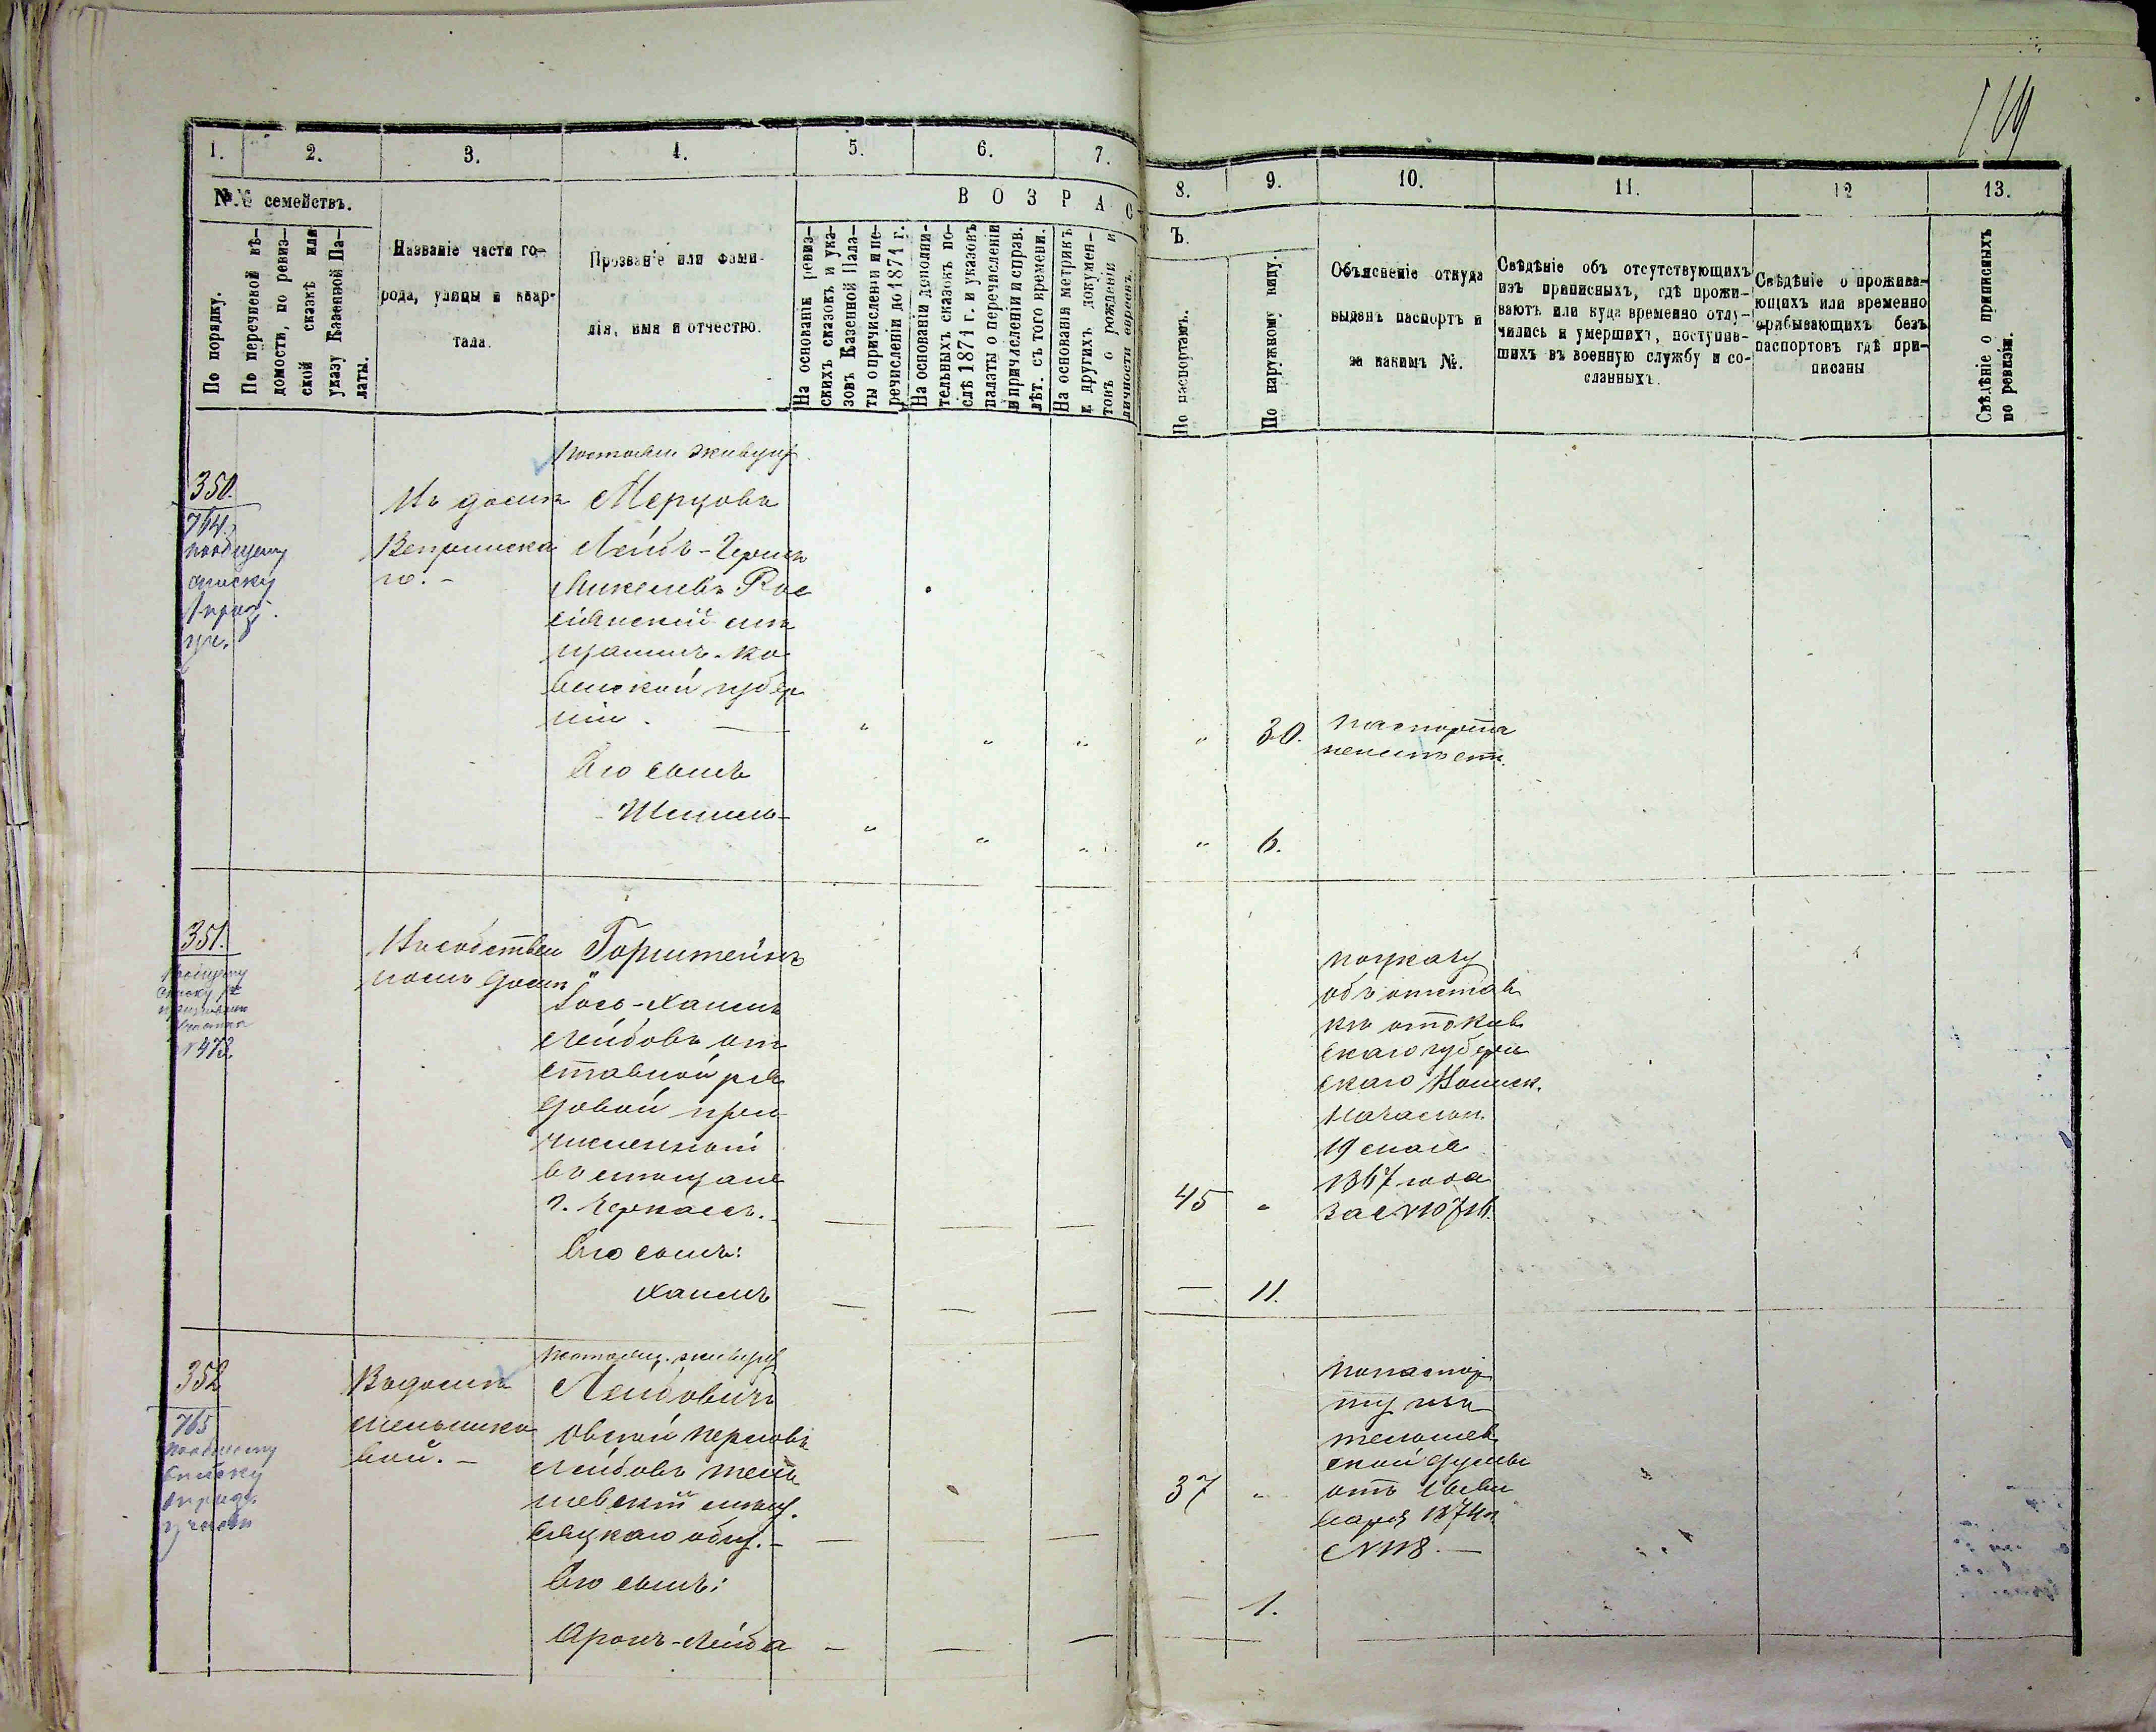 119
1.
2.
3.
4.
5.
6.
7.
8.
9.
10.
11.
12
13.
№№ семействъ.
По порядку.
По перечневой вѣ-
домости, по ревиз-
ской сказкѣ или
указу Казенной Па-
латы.
Названіе части го-
рода, улицы и квар-
тала.
Прозваніе или фами-
лія, имя и отчество.
ВОЗРАС
Ъ.
На основаніи ревиз-
скихъ сказокъ и ука-
зовъ Казенной Пала-
ты о причисленіи и пе-
речисленіи до 1871 г.
На основаніи дополни-
тельныхъ сказокъ по-
слѣ 1871 г. и указовъ
палаты о перечисленіи
и причисленіи и справ.
лѣт. съ того времени.
На основаніи метрикъ
и другихъ докумен-
товъ о рожденіи и
личности евреевъ.
По паспортамъ.
По наружному виду.
Объясненіе откуда
выданъ паспортъ и
за какимъ №.
Свѣдѣніе объ отсутствующихъ
изъ приписныхъ, гдѣ прожи-
ваютъ или куда временно отлу-
чились и умершихъ, поступив-
шихъ въ военную службу и со-
сланныхъ.
Свѣдѣніе о прожива-
ющихъ или временно
прибывающихъ безъ
паспортовъ гдѣ при-
писаны
Свѣдѣніе о приписныхъ
по ревизіи.
350.
764.
по общему
списку
1 приз.
уч.
Въ домѣ
Веприцка
го.-
Мерцовъ
Лейбъ-Гершъ
Микелевъ Рос
сіянскій мѣ
щанинъ. Ко
венской губер
ніи.
30.
паспорта
неимѣет.
Его сынъ
6.
351.
1473.
Въ собствен
номъ домѣ
Горштейнъ
Лейбовъ от
ставной ря
довой при
численный
въ мѣщане
г. Черкассъ.
45
по указу
объ отстав
кѣ от Кіев
скаго губерн
скаго Воинск.
Начальн.
19 мая
1867 года
за №
Его сынъ:
Хаимъ
11.
352
765
по общему
списку
Въ домѣ
Мельнико
вой.-
Лейбовичъ
Лейбовъ тель
шевскій мѣщ.
Его сынъ:
Аронъ-Лейба
37
по паспор
ту изъ
тельшев
ской думы
отъ
1874 г.
№ 118.
1.